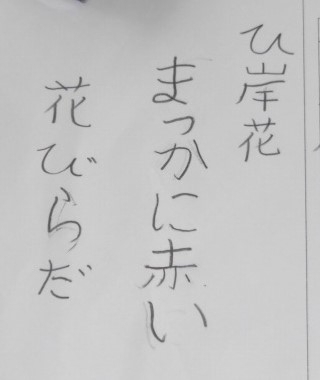 ひ岸花
まっかに赤い
花びらだ